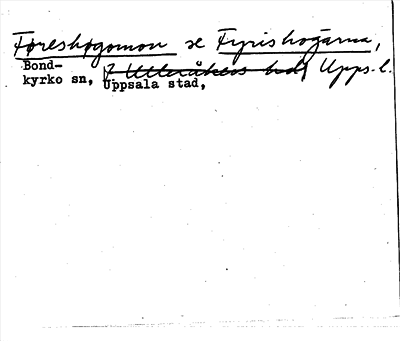 Føreshøgomon se Fyrishögarna,
Bond-
kyrko sn, f Ulleråkers hd Upps. l.
Uppsala stad,